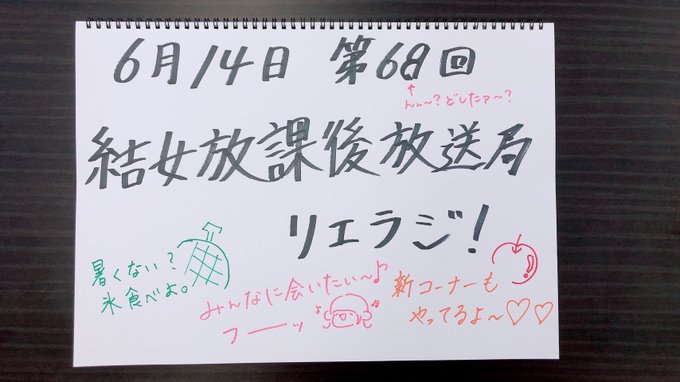 6月14日 第68回
↑
んん〜?どしたァ〜?
結女放課後放送局
リエラジ!
暑くない?
氷食べよ。
みんなに会いたい〜♪
フーーッ
新コーナーも
やってるよ〜♡♡